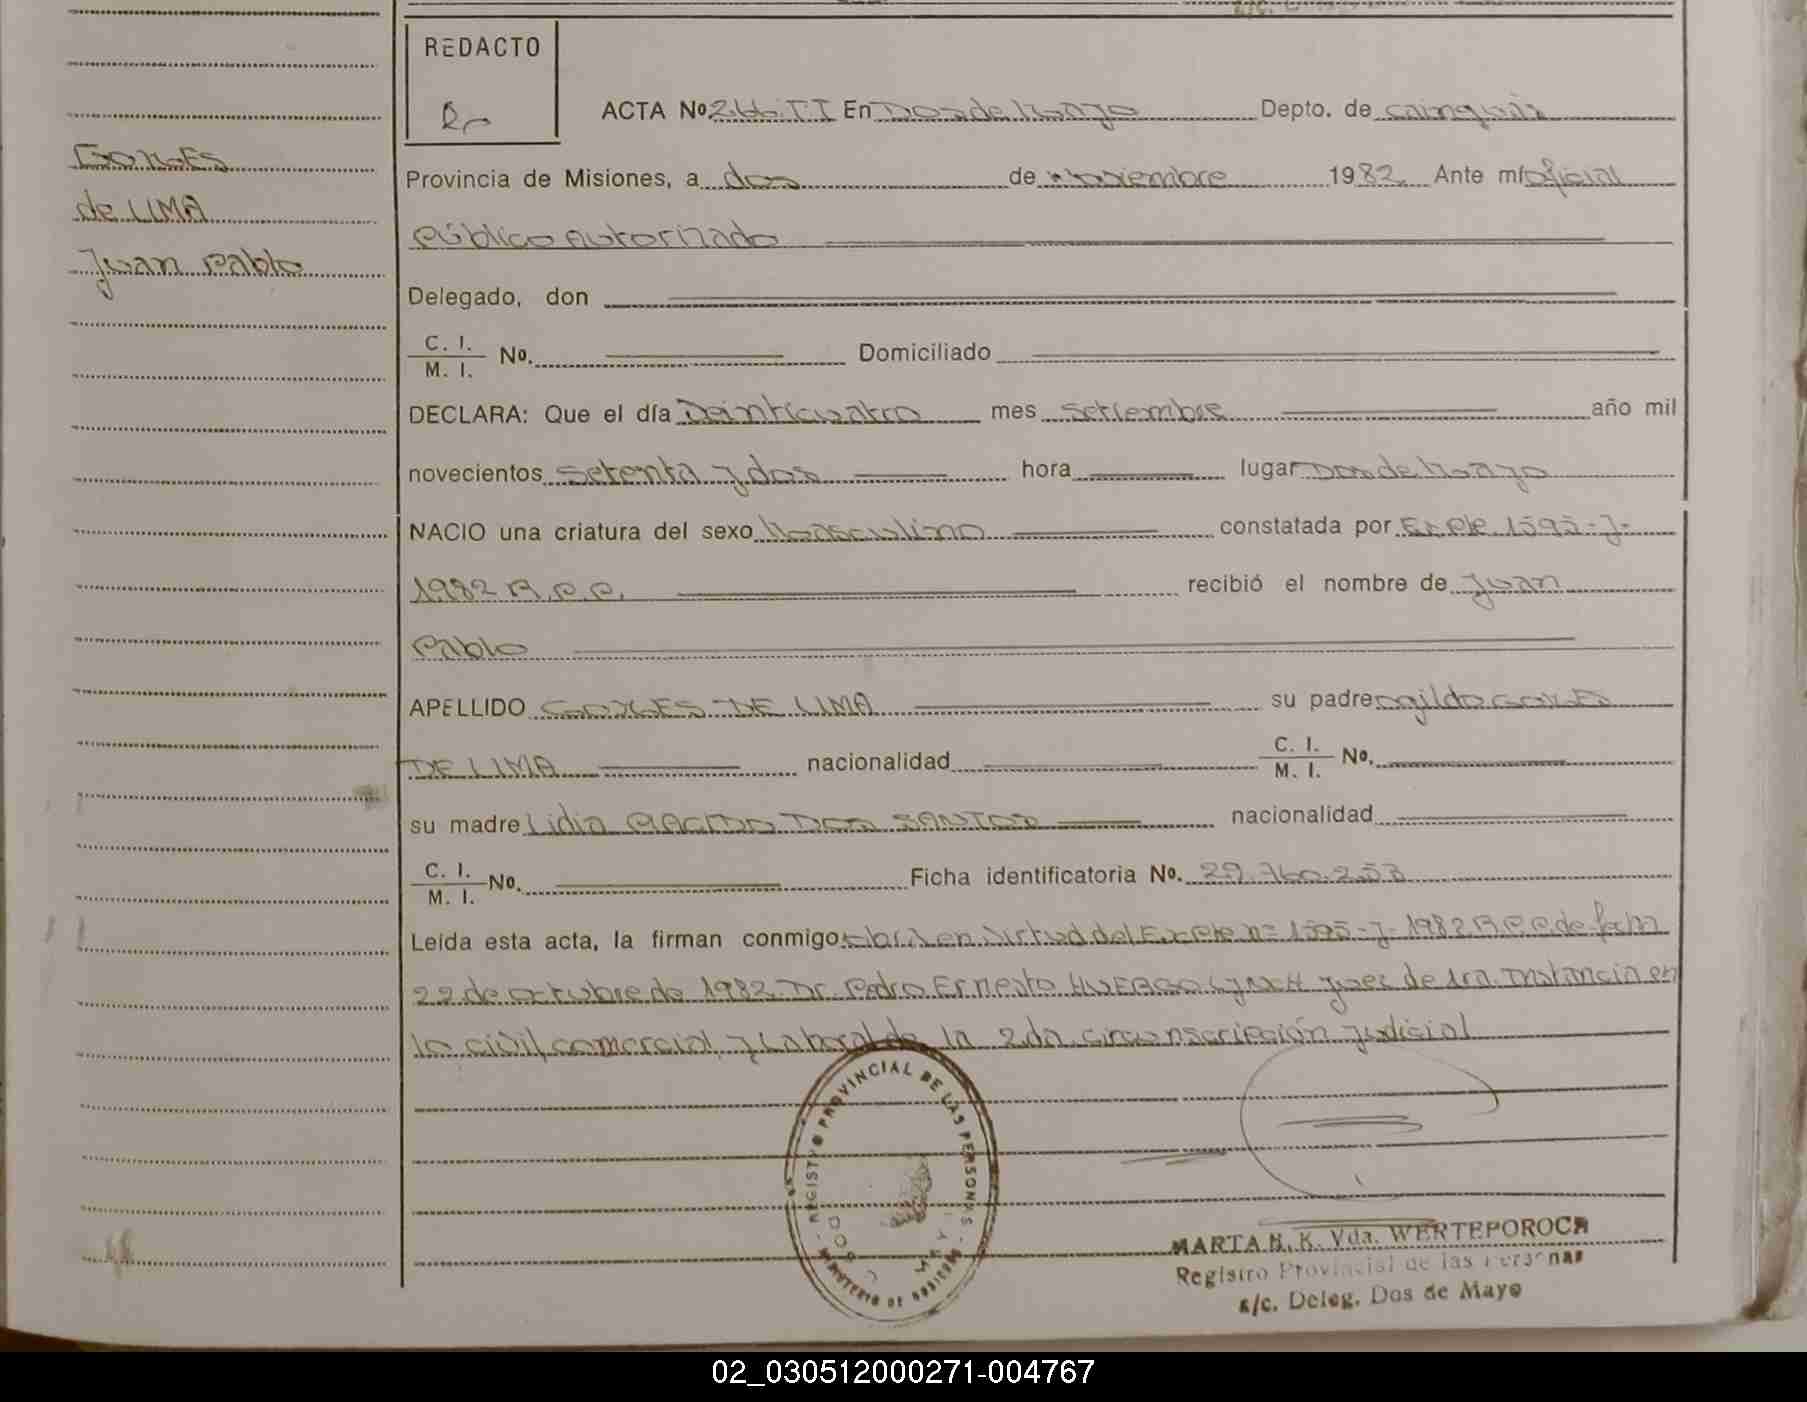 REDACTO
ACTA Nº 266 TI En Dos de Mayo Depto. de Cainguás
GOXGES
Provincia de Misiones, a dos de Noviembre 1982 Ante mí oficial
de LIMA
Público Autorizado
Juan Pablo
Delegado, don
C. I.
M. I. No. Domiciliado
DECLARA: Que el día Veinticuatro mes Setiembre año mil
novecientos setenta y dos hora lugar Dos de Mayo
NACIO una criatura del sexo Masculino constatada por Expte 1595-J-
1982 R.P.P. recibió el nombre de Juan
Pablo
APELLIDO GOXGES DE LIMA su padre Ogildo GOXGES
DE LIMA nacionalidad C. I.
M. I. No.
su madre Lidia PLACIDO DOS SANTOS nacionalidad
C. I.
M. I. No. Ficha identificatoria No. 29.760.253
Leída esta acta, la firman conmigo en Virtud del Expte nº 1595-J-1982 R.P.P de fecha
22 de octubre de 1982. Dr. Pedro Ernesto HUERGO LYNCH juez de 1ra. Instancia en
lo civil, comercial, y Laboral de la 2da. circunscripción judicial
REGISTRO PROVINCIAL DE LAS PERSONAS
MINISTERIO DE GOBIERNO
MARTA H. K. Vda. WERTEPOROCH
Registro Provincial de las Personas
a/c. Deleg. Dos de Mayo
02_030512000271-004767